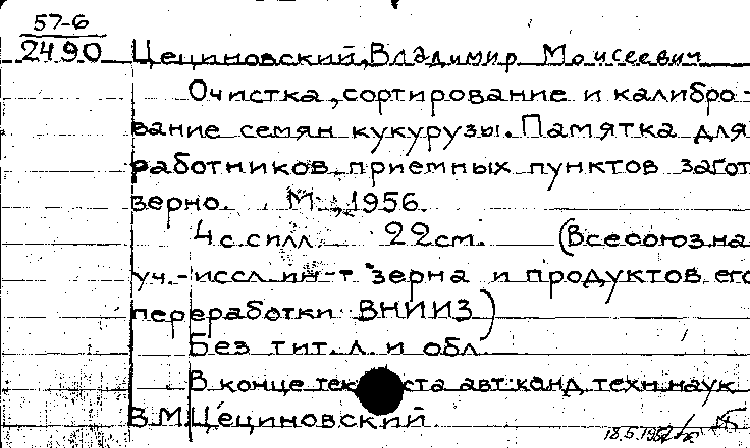 57-6
2490
Цециновский, Владимир Моисеевич
Очистка, сортирование и калибро-
вание семян кукурузы. Памятка для
работников приемных пунктов загот
зерно. М., 1956.
4 с. с илл. 22 см. (Всесоюз. на
уч.-иссл. ин-т зерна и продуктов его
переработки ВНИИЗ)
Без тит. л. и обл.
В конце текста авт: канд. техн. наук
В.М. Цециновский.
18.5.195